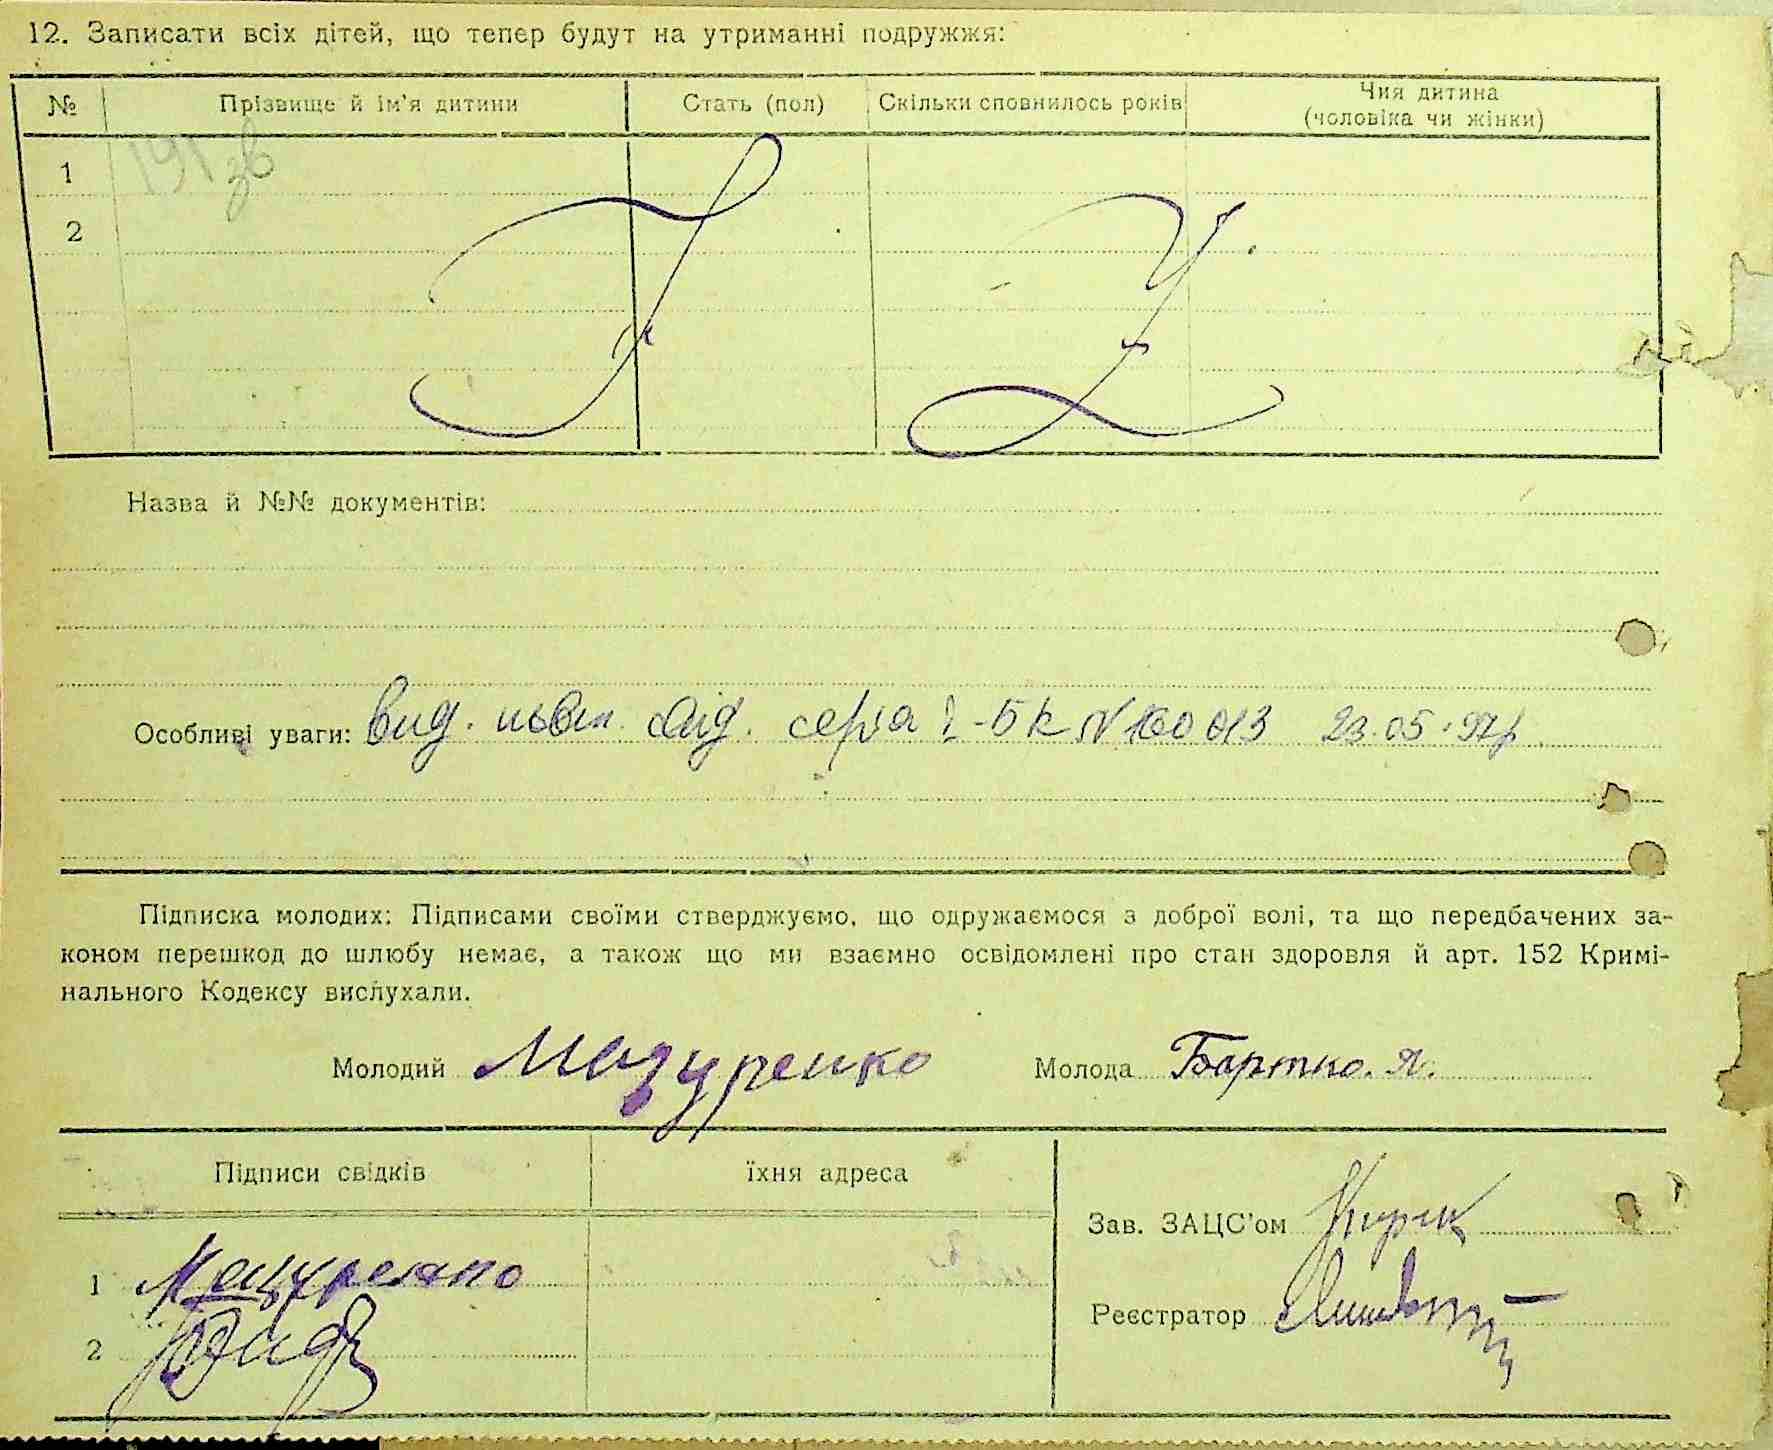 12. Записати всіх дітей, що тепер будут на утриманні подружжя:
№ Прізвище й ім'я дитини Стать (пол) Скільки сповнилось років Чия дитина (чоловіка чи жінки)
1
2
Назва й №№ документів:
Особливі уваги: вид. повт. свід. серія -БК N 160013 23.05.97р.
Підписка молодих: Підписами своїми стверджуємо, що одружаємося з доброї волі, та що передбачених за-
коном перешкод до шлюбу немає, а також що ми взаємно освідомлені про стан здоровля й арт. 152 Кримі-
нального Кодексу вислухали.
Молодий Мазуренко Молода Бартко. Я.
Підписи свідків їхня адреса
Зав. ЗАЦС'ом
1 Мазуренко
Реєстратор
2